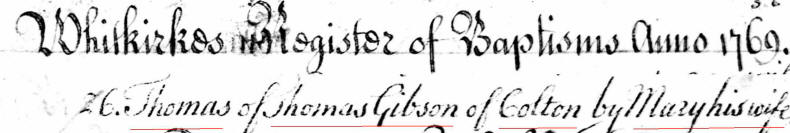 Whitkirkes Register of Baptisms Anno 1769.
26. Thomas of Thomas Gibson of Colton by Mary his wife